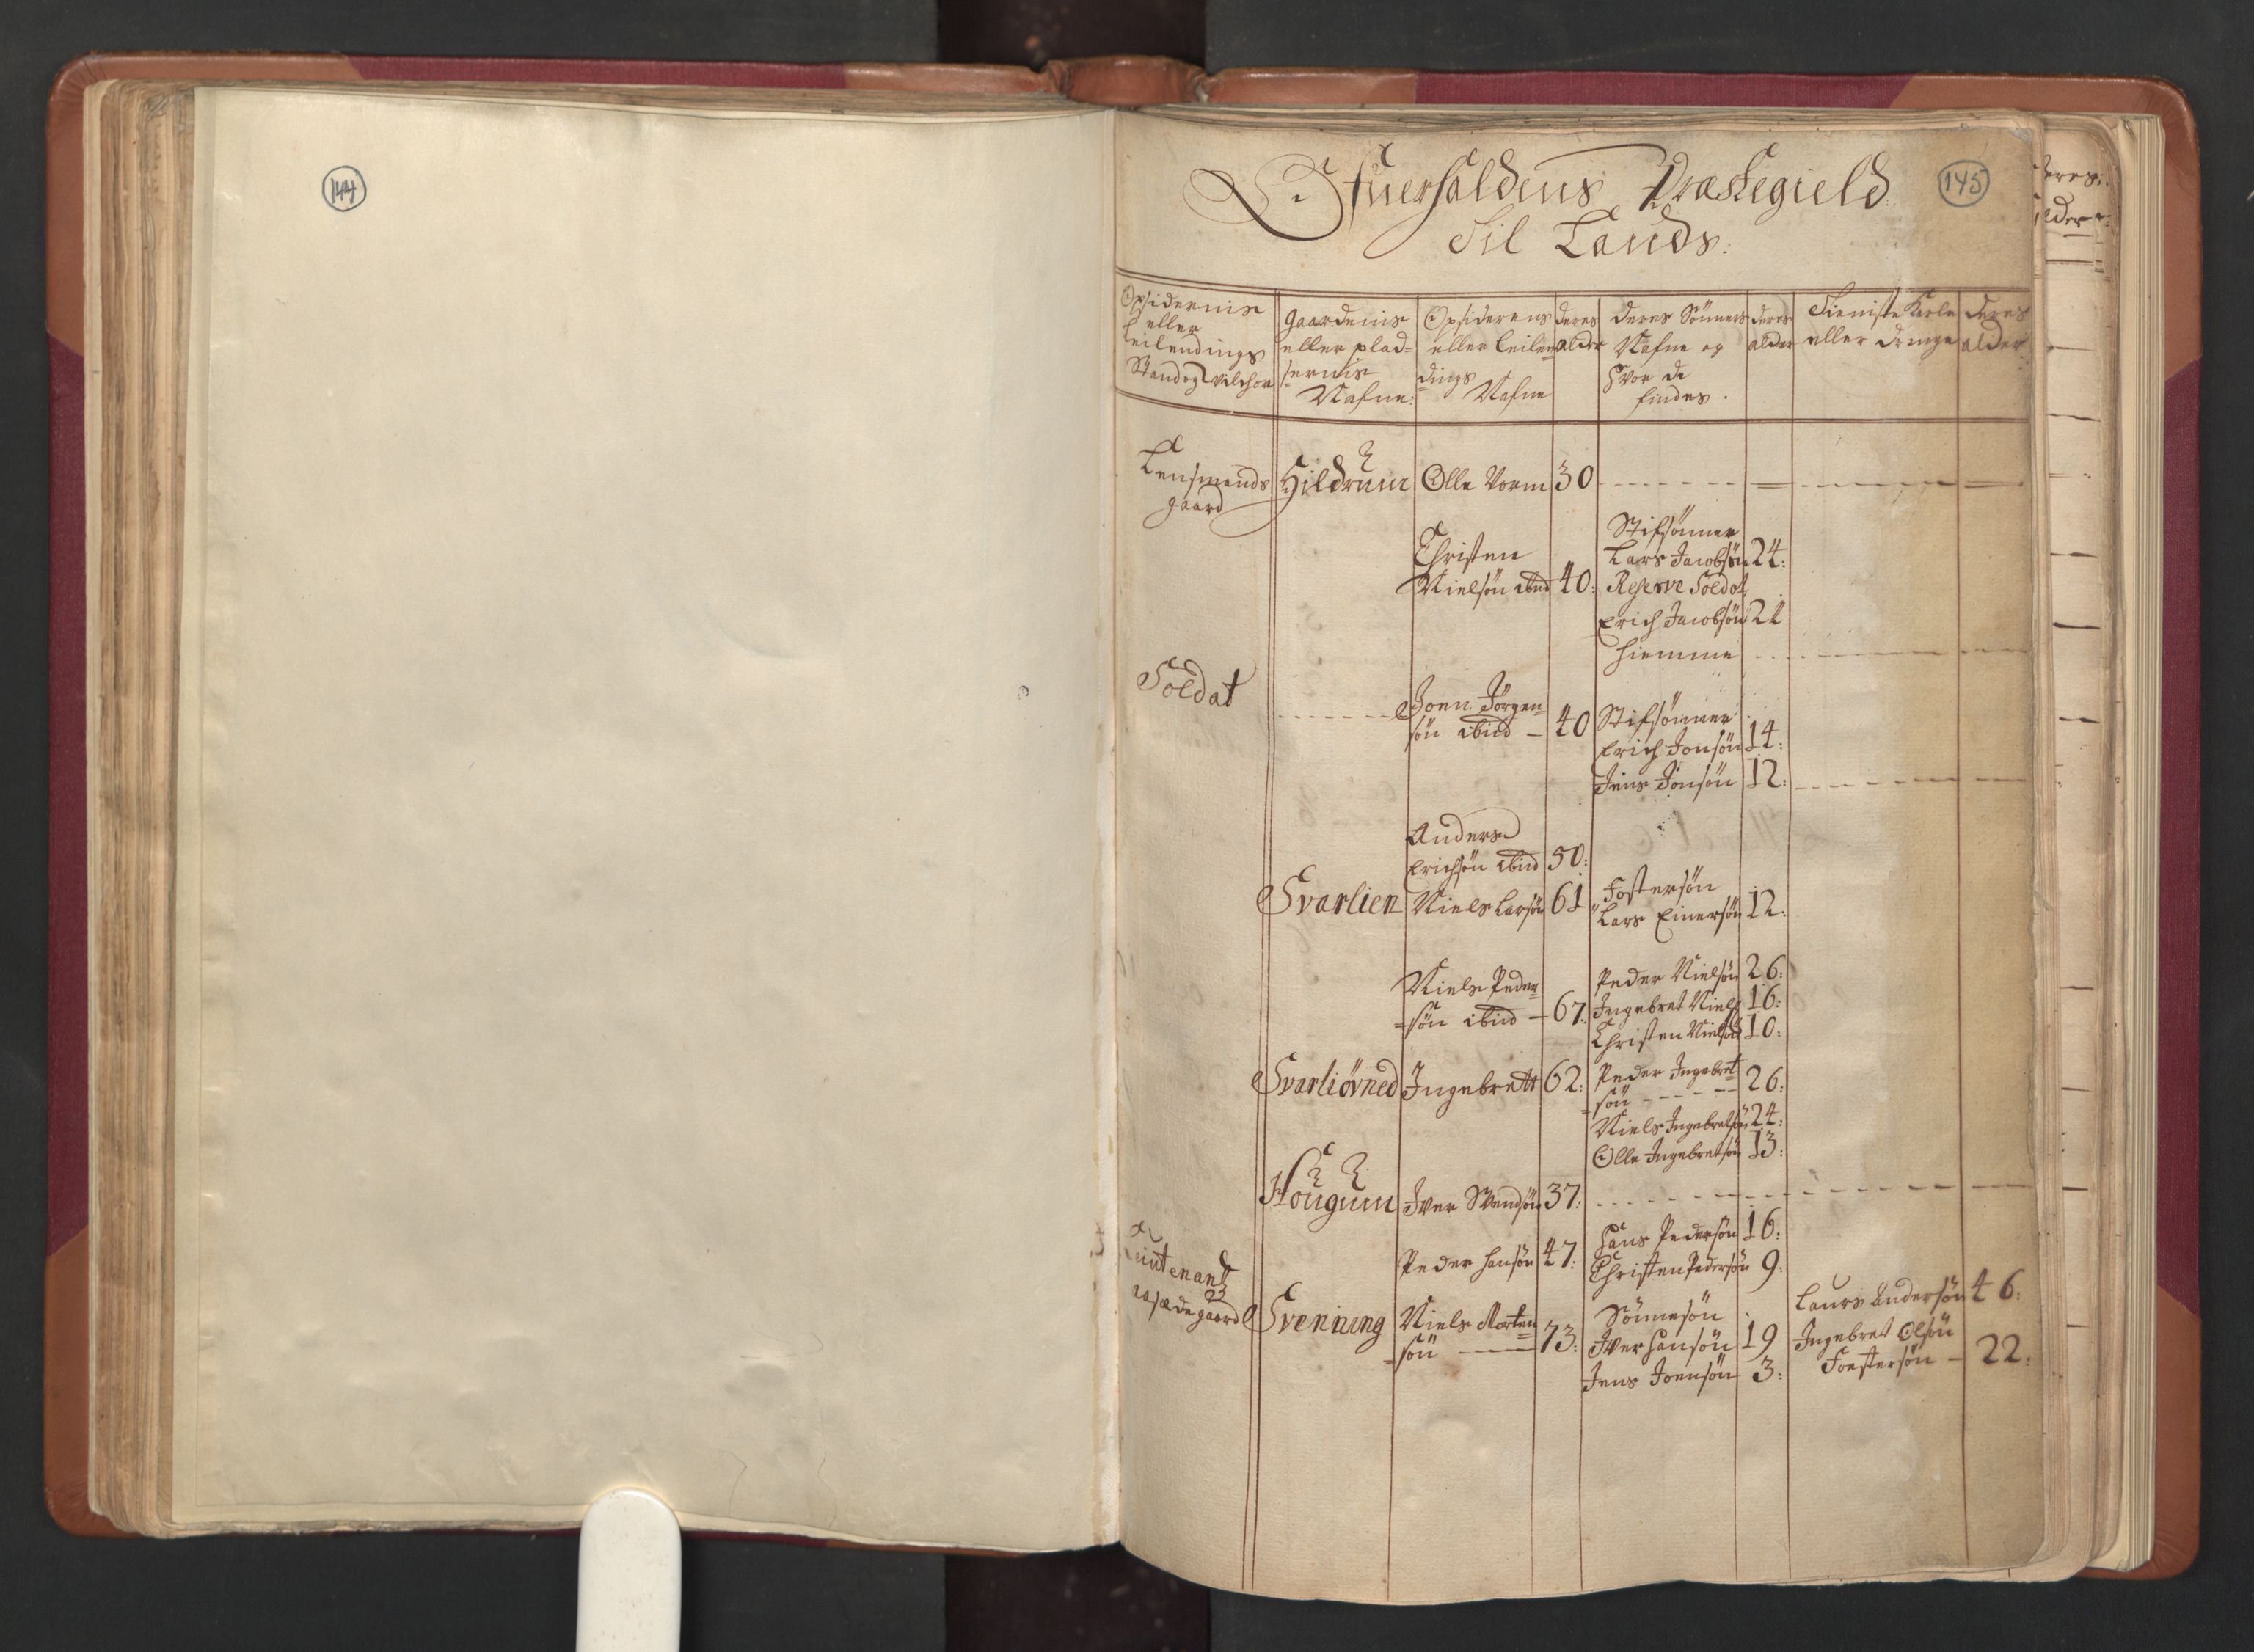 144
145
Ofuerhaldens Præstegield
Til Lands:
Opsidernis eller leilendings Stand og vilchor
Gaardenis eller pladsernis Nafne:
Opsiderens eller leilendings Nafne
deres alder
deres Sönners Nafne og hvor de findes.
deres alder
Tieniste Karle eller Drenge
deres alder
Lensmends gaard Hildrum Olle Vorm 30
Christen Nielsön ibid 40: Stifsönner
Lars Jacobsön 24:
Reserve Soldat
Erich Jacobsön 21
hiemme
Soldat Joen Jörgen=
sön ibid – 40 Stifsönner
Erich Jonsön 14:
Jens Jonsön 12:
Anders
Erichsön ibid 50:
Svarlien Niels Larsön 61 Fostersön
Lars Einersön 12:
Niels Peder=
=sön ibid – 67: Peder Nielsön 26:
Ingebret Niels 16:
Christen Nielsön 10:
Svarliövned Ingebrett 62: Peder Ingebret=
=sön 26:
Niels Ingebretsön 24:
Olle Ingebretsön 13:
Hougum Iver Svendsön 37:
Peder Hansön 47: Hans Pedersön 16:
Christen Pedersön 9:
Leutenant
gaard Svenning Niels Morten=
=sön 73: Sönnesön
Iver Hansön 19
Jens Joensön 3:
Laurs Andersön 46:
Ingebret Olsön
Foestersön – 22:
deres
alder